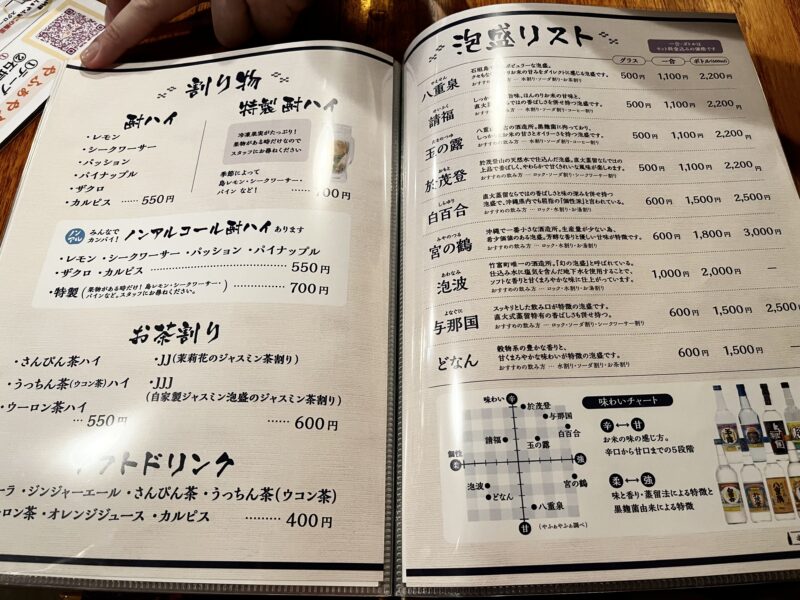 割り物
酎ハイ
・レモン
・シークワーサー
・パッション
・パイナップル
・ザクロ
・カルピス …… 550円
特製 酎ハイ
冷凍果実がたっぷり!
果物がある時だけなので
スタッフにお尋ねください
季節によって
島レモン・シークワーサー・
パイン など!
700円
ノンアル
みんなで
カンパイ!
ノンアルコール酎ハイ あります
・レモン・シークワーサー・パッション ・パイナップル
・ザクロ・カルピス 550円
・特製 (果物がある時だけ!島レモン・シークワーサー・
パインなど。スタッフにお尋ねください。) 700円
お茶割り
・さんぴん茶ハイ
・うっちん茶(ウコン茶)ハイ
・ウーロン茶ハイ
…… 550円
・JJ(茉莉花のジャスミン茶割り)
・JJJ
(自家製ジャスミン泡盛のジャスミン茶割り)
…… 600円
フトドリンク
ーラ ・ジンジャーエール ・さんぴん茶 ・うっちん茶(ウコン茶)
ーロン茶 ・オレンジジュース ・カルピス 400円
泡盛リスト
グラス 一合
八重泉
500円 1,100円 2,200円
請福
500円 1,100円 2,200円
直火蒸留ならではの香ばしさを併せ持つ泡盛です。
玉の露
500円 1,100円 2,200円
於茂登
於茂登山の天然水で仕込んだ泡盛。直火蒸留ならではの
上品で香ばしく、やわらかで甘くきれいな風味が楽しめます。
500円 1,100円 2,200円
白百合
直火蒸留ならではの香ばしさと味の深みを併せ持つ
泡盛で、沖縄県内でも屈指の「個性派」と言われている。
おすすめの飲み方 … ロック・水割り・お湯割り
600円 1,500円 2,500円
みやのつる
宮の鶴
沖縄で一番小さな酒造所。生産量が少ない為、
希少価値のある泡盛。芳醇な香りと優しい甘味が特徴です。
おすすめの飲み方 … ロック・水割り・お湯割り
600円 1,800円 3,000円
あわなみ
泡波
竹富町唯一の酒造所。「幻の泡盛」と呼ばれている。
仕込み水に塩気を含んだ地下水を使用することで、
ソフトな香りと甘くまろやかな味に仕上がっています。
おすすめの飲み方 … ロック・水割り・お湯割り
1,000円 2,000円 —
よなぐに
与那国
スッキリとした飲み口が特徴の泡盛です。
直火式蒸留特有の香ばしさも併せ持つ。
おすすめの飲み方 … ロック・ソーダ割り・シークワーサー割り
600円 1,500円 2,500円
どなん
穀物系の豊かな香りと、
甘くまろやかな味わいが特徴の泡盛です。
おすすめの飲み方 … 水割り・ソーダ割り・お茶割り
600円 1,500円
味わい 辛
個性 柔
強
甘
於茂登
与那国
白百合
請福
玉の露
泡波
どなん
宮の鶴
八重泉
(やふぁやふぁ調べ)
味わいチャート
辛 ↔ 甘
お米の味の感じ方。
辛口から甘口までの5段階
柔 ↔ 強
味と香り・蒸留法による特徴と
黒麹菌由来による特徴